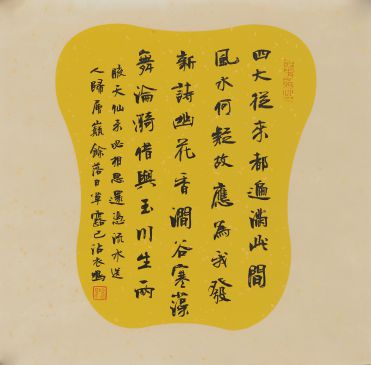 四大從來都遍滿此間
風水何疑故應為我發
新詩幽花香澗谷寒藻
舞淪漪借與玉川生兩
腋天仙未必相思還憑流水送
人歸層巔餘落日草露已沾衣